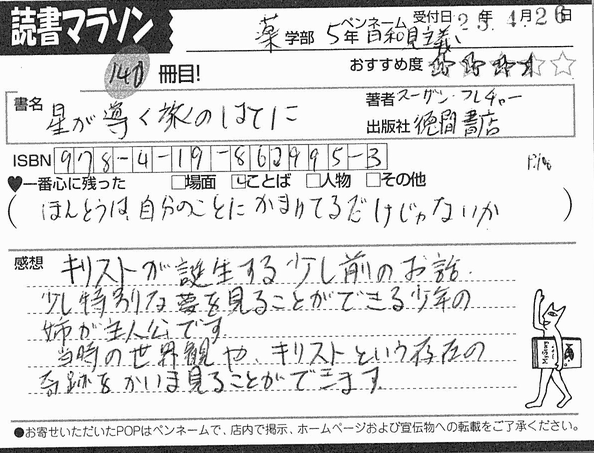 読書マラソン
薬学部 5年 ペンネーム 日和見主義 受付日 23年 4月26日
140冊目! おすすめ度
書名 星が導く旅のはてに
著者 スーザン・フレチャー
出版社 徳間書店
ISBN 978-4-19-862995-3
♥一番心に残った □場面 □ことば □人物 □その他
(ほんとうは、自分のことにかまけてるだけじゃないか)
感想 キリストが誕生する少し前のお話。
少し特別な夢を見ることができる少年の
姉が主人公です。
当時の世界観や、キリストという存在の
奇跡をかいま見ることができます。
●お寄せいただいたPOPはペンネームで、店内で掲示、ホームページおよび宣伝物への転載をご了承ください。